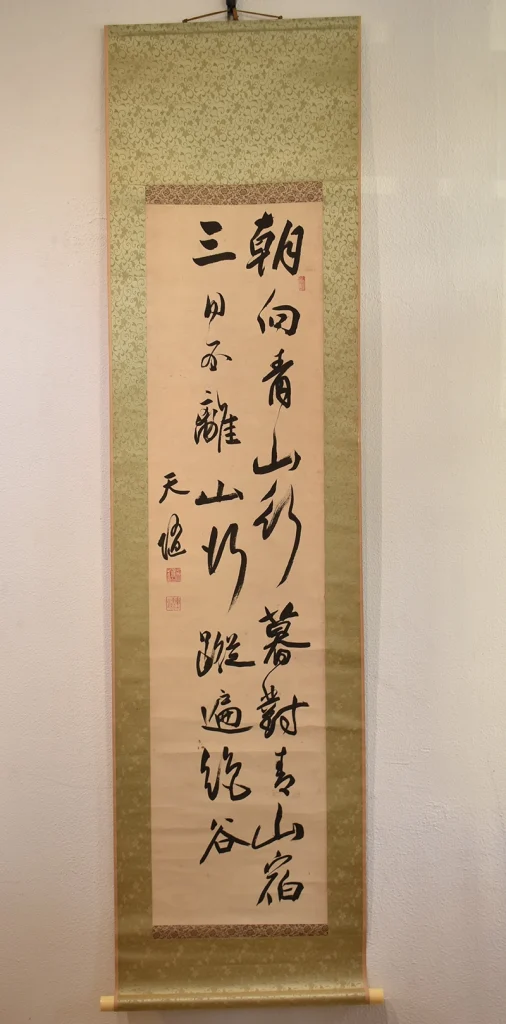 朝向青山行暮對青山宿
三日不離山行蹤遍絶谷
天